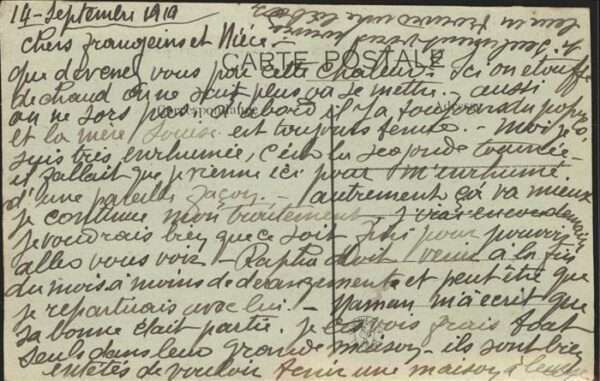 14 - Septembre 1919
Chers frangeins et Nièce -
que devenez vous par cette chaleur. Ici on étouffe
de chaud on ne sait plus où se mettre. aussi
on ne sors pas. d'abord il y a toujours du popu
et la mère Louise est toujours tenue. - Moi je
suis très enrhumée, c'est la seconde tournée -
il fallait que je vienne ici pour m'enrhumé
d'une pareille façon. - autrement ça va mieux
je continue mon traitement - J'irai encore demain
je voudrais bien que ce soit fini pour pouvoir
aller vous voir - doit venir à la fin
du mois à moins de derangements et peut être que
je repartirais avec lui. - Maman m'a écrit que
sa bonne était partie. Je les vois frais tout
seuls dans leur grande maison - ils sont bien
entêtés de vouloir tenir une maison à leur
CARTE POSTALE
Correspondance